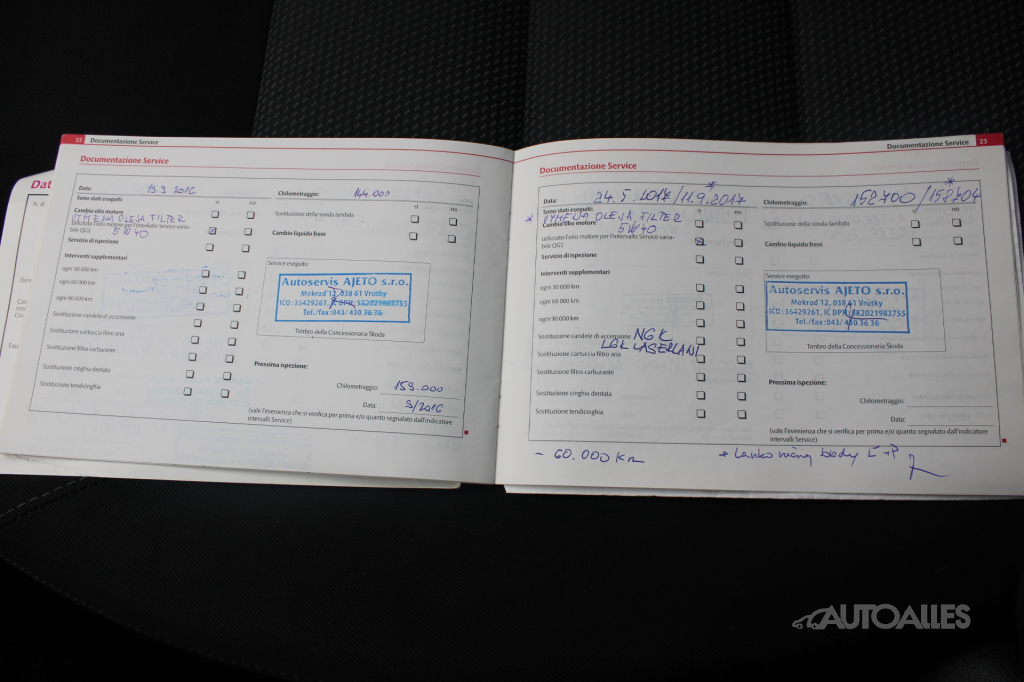 22 Documentazione Service
Documentazione Service
Data:
Chilometraggio: 144.000
Sono stati eseguiti: si no
Cambio olio motore
VÝMENA OLEJA FILTER
utilizzato l'olio motore per l'intervallo Service varia-
bile QG1
5W40
Servizio di ispezione
Interventi supplementari
ogni 30 000 km
ogni 60 000 km
ogni 90 000 km
Sostituzione candele di accensione
Sostituzione cartuccia filtro aria
Sostituzione filtro carburante
Sostituzione cinghia dentata
Sostituzione tendicinghia
si no
Sostituzione della sonda lambda
Cambio liquido freni
Service eseguito:
Autoservis AJETO s.r.o.
Mokrad 12, 038 61 Vrútky
IČO: 36429261, IČ DPH: SK2021983755
Tel./fax: 043/ 430 36 36
Timbro della Concessionaria Škoda
Prossima ispezione:
Chilometraggio: 159.000
Data: 9/2016
(vale l'evenienza che si verifica per prima e/o quanto segnalato dall'indicatore
intervalli Service)
Documentazione Service 23
Documentazione Service
Data: 24.5.2017/11.9.2017 *
Chilometraggio: 158400/158704 *
Sono stati eseguiti: si no
* VÝMENA OLEJA FILTER
Cambio olio motore
5W40
utilizzato l'olio motore per l'intervallo Service varia-
bile QG1
Servizio di ispezione
Interventi supplementari
ogni 30 000 km
ogni 60 000 km
ogni 90 000 km
Sostituzione candele di accensione NGK
Sostituzione cartuccia filtro aria
Sostituzione filtro carburante
Sostituzione cinghia dentata
Sostituzione tendicinghia
si no
Sostituzione della sonda lambda
Cambio liquido freni
Service eseguito:
Autoservis AJETO s.r.o.
Mokrad 12, 038 61 Vrútky
IČO: 36429261, IČ DPH: SK2021983755
Tel./fax: 043/ 430 36 36
Timbro della Concessionaria Škoda
Prossima ispezione:
Chilometraggio:
Data:
(vale l'evenienza che si verifica per prima e/o quanto segnalato dall'indicatore
intervalli Service)
- 60.000 Km
Dat
N. di
AUTOALLES